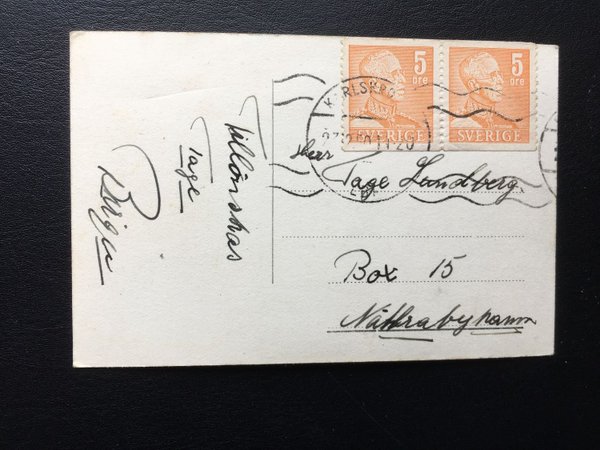 5
ÖRE
SVERIGE
5
ÖRE
SVERIGE
Tillönskas
Tage
Birger
Herr
Tage Lundberg
Box 15
Nättrabyhamn